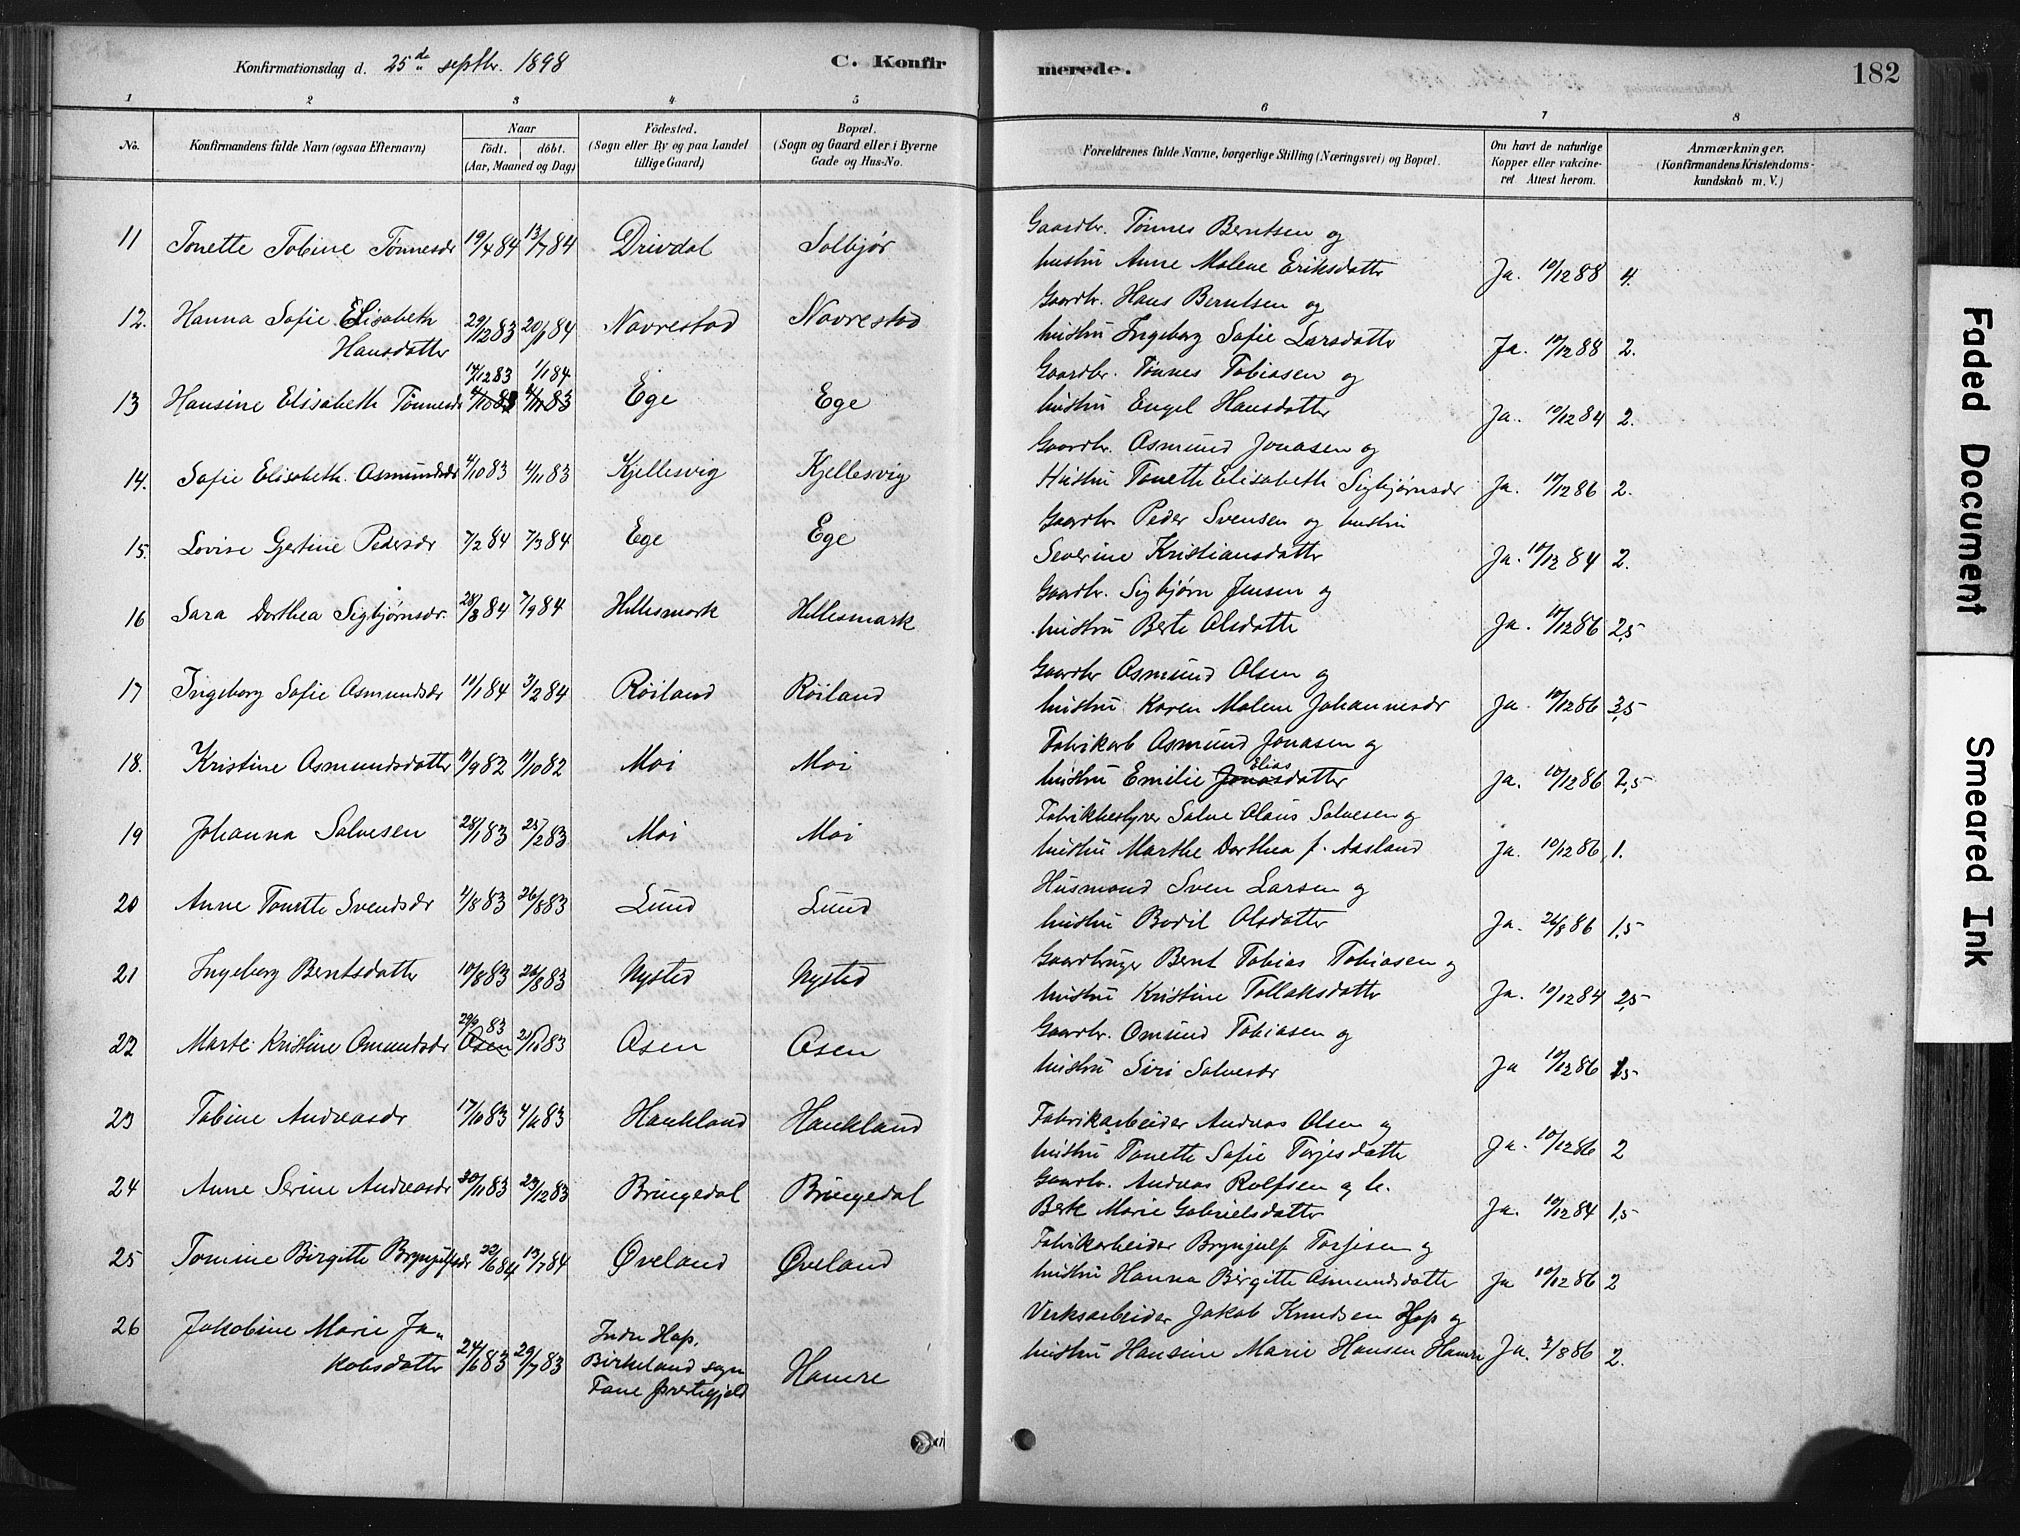 Konfirmationsdag d. 25de septbr. 1898
C. Konfir
merede.
182
1 2 3 4 5 6 7 8
No.
Konfirmandens fulde Navn (ogsaa Efternavn)
Naar
födt. döbt.
(Aar, Maaned og Dag)
Födested.
(Sogn eller By og paa Landet
tillige Gaard)
Bopæl.
(Sogn og Gaard eller i Byerne
Gade og Hus-No.
Forældrenes fulde Navne, borgerlige Stilling (Næringsvei) og Bopæl.
Om havt de naturlige
Kopper eller vakcine-
ret Attest herom.
Anmærkninger.
(Konfirmandens Kristendoms-
kundskab m. V.)
11 Tonette Tobine Tønnesdr 19/4 84 13/7 84 Drivdal Solbjør
Gaardbr. Tønnes Berntsen og
hustru Anne Malene Eriksdatter Ja. 10/12 88 4.
12. Hanna Sofie Elisabeth
Hansdatter 29/12 83 20/1 84 Navrestad Navrestad
Gaardbr. Hans Berntsen og
hustru Ingeborg Sofie Larsdatter Ja. 10/12 88 2.
14/12 83 1/1 84
13 Hansine Elisabeth Tønnesdr 4/10 83 4/11 83 Ege Ege
Gaardbr. Tønnes Tobiasen og
hustru Engel Hansdatter Ja. 10/12 84 2.
14. Sofie Elisabeth Osmundsdr 4/10 83 4/11 83 Kjellesvig Kjellesvig
Gaardbr. Osmund Jonasen og
Hustru Tonette Elisabeth Sigbjørnsdr Ja. 10/12 86 2.
15. Lovise Gjertine Pedersdr 7/2 84 7/3 84 Ege Ege
Gaardbr Peder Svensen og hustru
Severine Kristiansdatter Ja. 10/12 84 2.
16 Sara Dorthea Sigbjørnsdr. 28/3 84 7/9 84 Hellesmark Hellesmark
Gaardbr. Sigbjørn Jensen og
hustru Berte Olsdatter Ja. 10/12 86 2,5
17 Ingeborg Sofie Osmundsdr 11/1 84 3/2 84 Røiland Røiland
Gaardbr Osmund Olsen og
hustru Karen Malene Johannesdr Ja. 10/12 86 3,5
18. Kristine Osmundsdatter 11/9 82 11/10 82 Moi Moi
Fabrikarb Osmund Jonasen og
Elias
hustru Emilie Jonasdatter Ja. 10/12 86 2,5
19 Johanna Salvesen 28/1 83 25/2 83 Moi Moi
Fabrikbestyrer Salve Olaus Salvesen og
hustru Marthe Dorthea f. Aasland Ja. 10/12 86 1.
20 Anne Tonette Svendsdr 4/8 83 26/8 83 Lund Lund
Husmand Sven Larsen og
hustru Bodil Olsdatter Ja. 26/8 86 1,5
21 Ingeborg Berntsdatter 10/8 83 26/8 83 Nysted Nysted
Gaardbruger Bernt Tobias Tobiasen og
hustru Kristine Tollaksdatter Ja. 10/12 84 2,5
29/9 83
22 Marte Kristine Omundsdr Osen 21/10 83 Osen Osen
Gaardbr. Omund Tobiasen og
hustru Siri Salvesdr Ja 10/12 86 1,5
23 Tobine Andreasdr 17/10 83 4/11 83 Haukland Haukland
Fabrikarbeider Andreas Olsen og
hustru Tonette Sofie Torjesdatter Ja. 10/12 86 2
24 Anne Serine Andreasdr 30/11 83 23/12 83 Bringedal Bringedal
Gaardbr. Andreas Rolfsen og h.
Berte Marie Gabrielsdatter Ja. 10/12 84 1,5
25 Tomine Birgitte Brynjulfsdr 22/6 84 13/7 84 Øveland Øveland
Fabrikarbeider Brynjulf Torjesen og
hustru Hanna Birgitte Osmundsdatter Ja 10/12 86 2
26 Jakobine Marie Ja-
kobsdatter 24/6 83 29/7 83 Indre Hop,
Birkeland sogn
Fane prestegjeld Hamre
Verksarbeider Jakob Knudsen Hop og
hustru Hansine Marie Hansen Hamre Ja. 3/8 86 2.
Faded Document
Smeared Ink